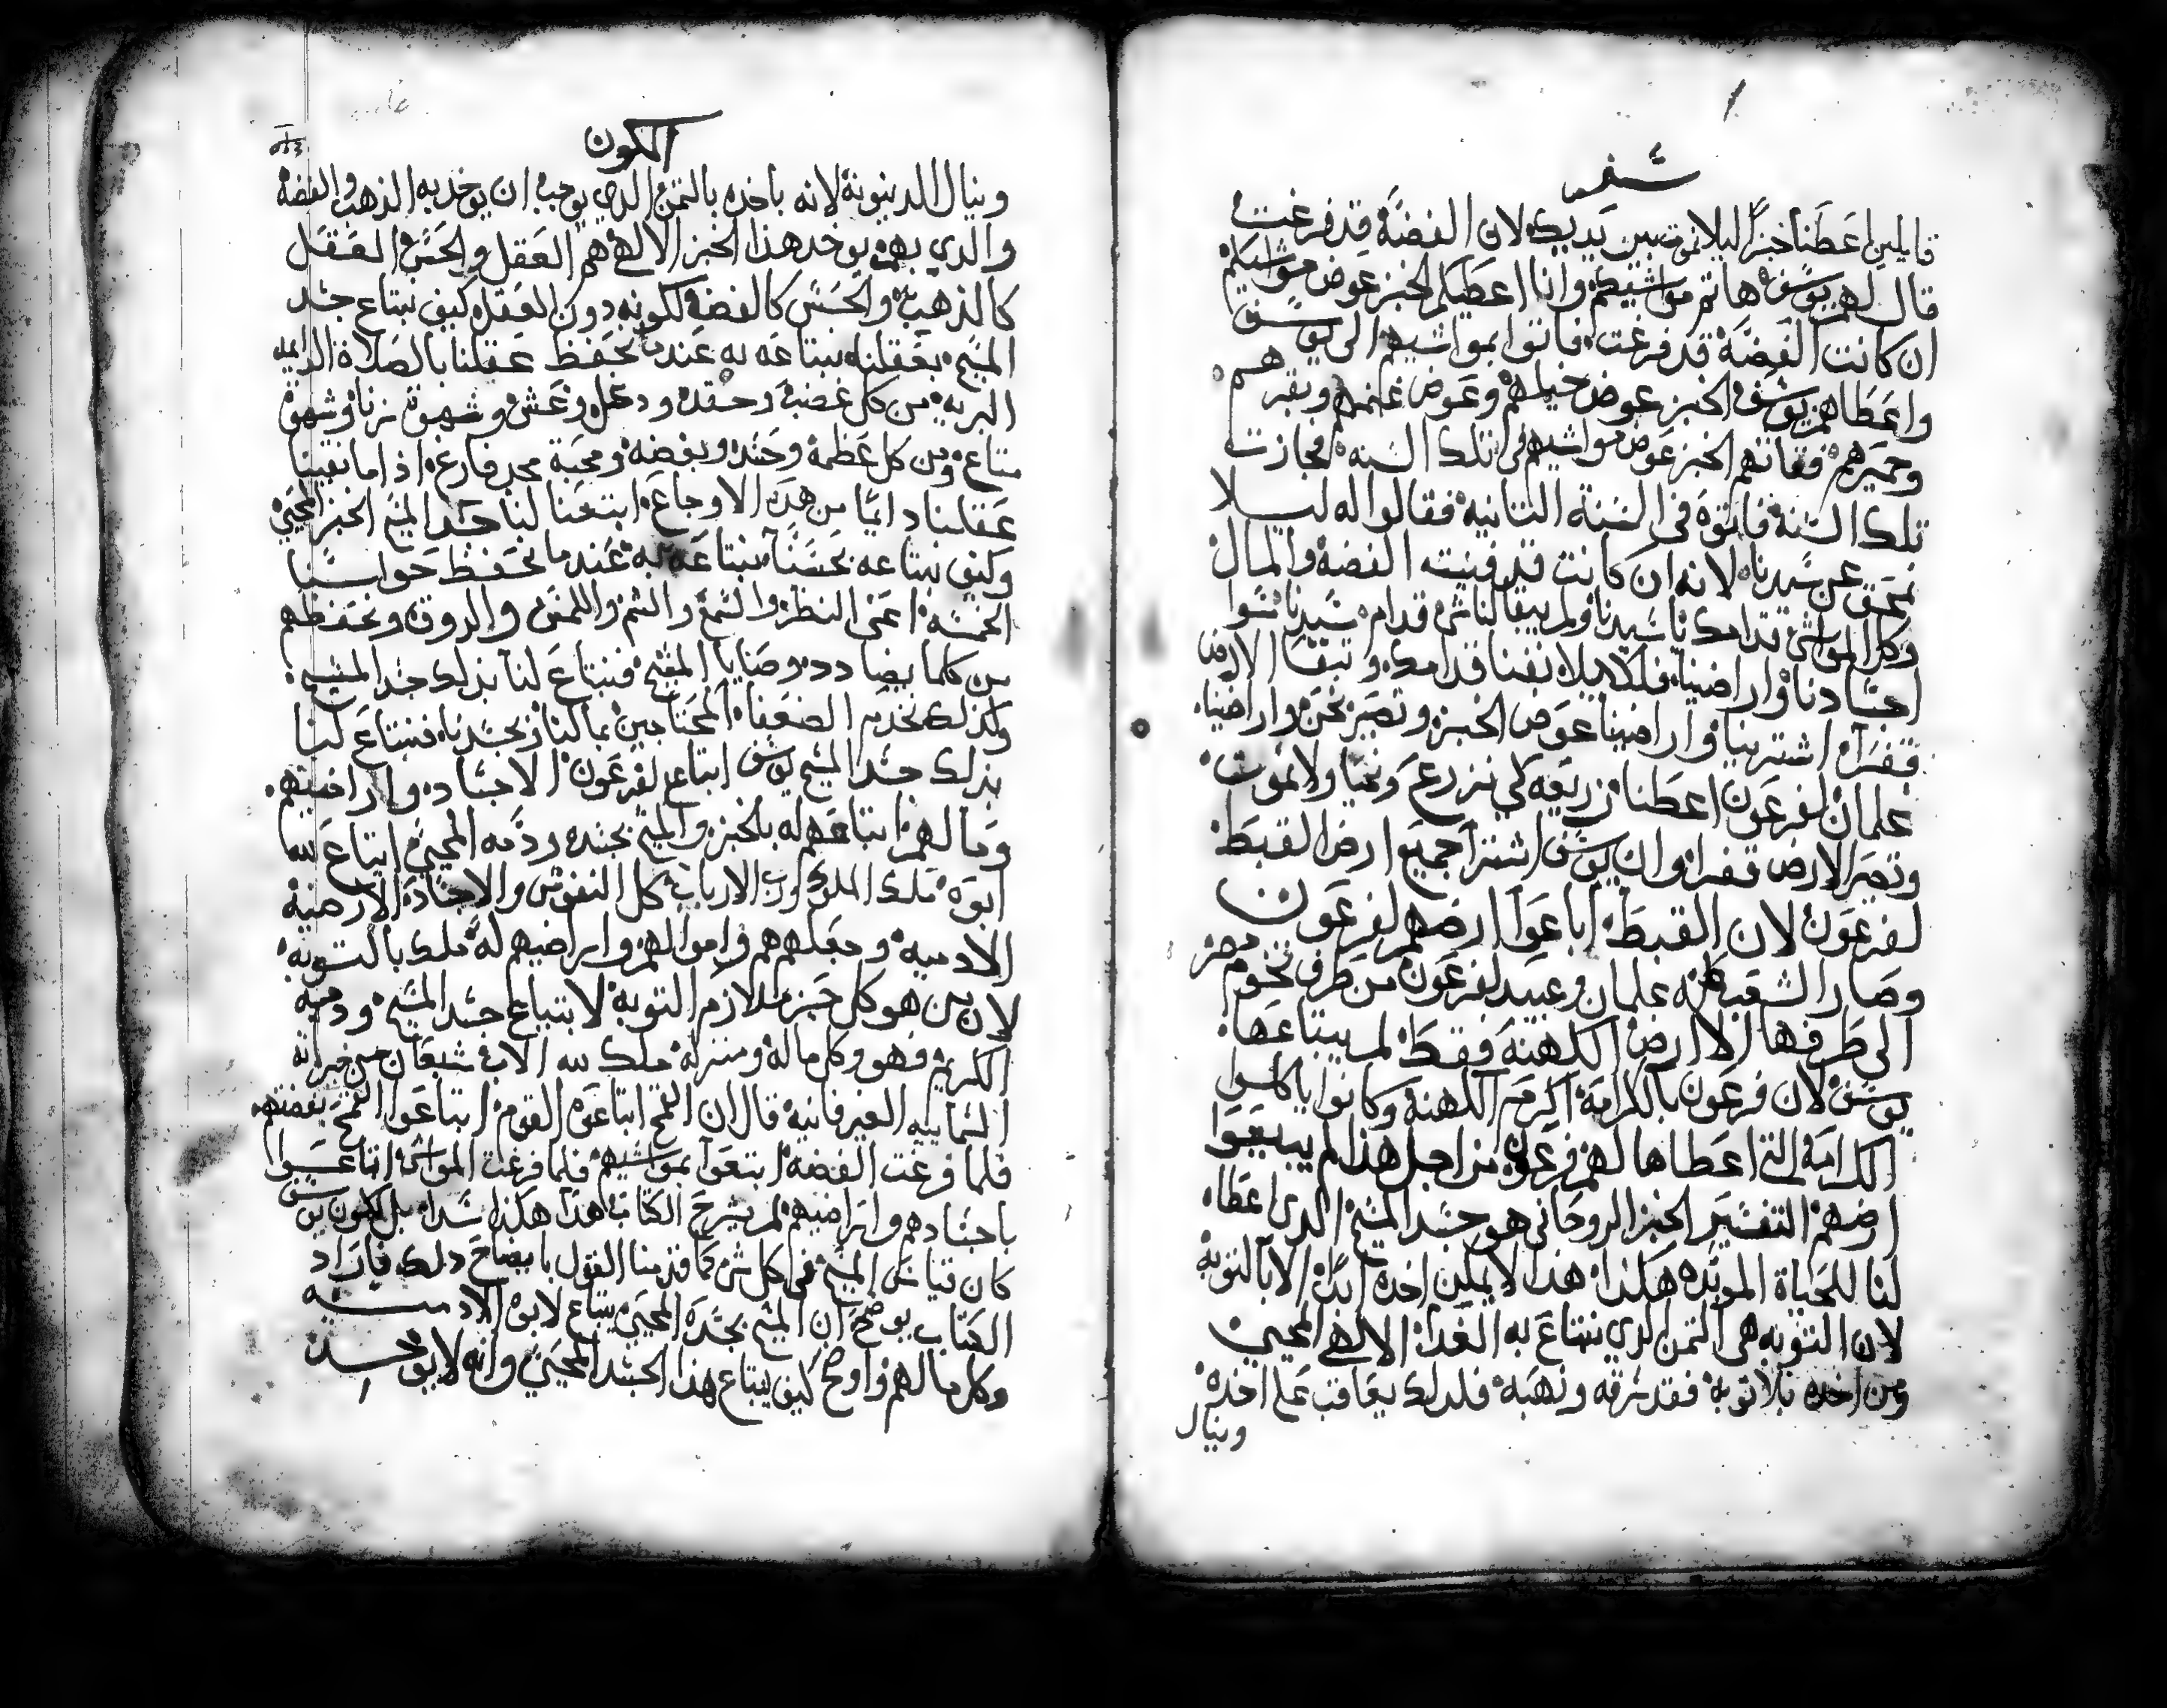 سفر
قايلين اعطنا خبزا ليلا نموت بين يديك لان الفضة قد فرغت
قال لهم يوسف هاتم مواشيكم وانا اعطيكم الخبز عوض مواشيكم
ان كانت الفضة قد فرغت فاتوا بمواشيهم الى يوسف
واعطاهم يوسف الخبز عوض خيلهم وعوض غنمهم وبقرهم
وحميرهم فقاتهم الخبز عوض مواشيهم في تلك السنه فجازت
تلك السنة فاتوه في السنة التانيه فقالوا له ليلا
نمحق عن سيدنا لانه ان كانت قد فنيته الفضة والمال
وكل المواشي قدامك يا سيدنا ولم يبقا لنا شي قدام سيدنا سوا
اجسادنا واراضينا فلكيلا نفنا قدامك وتبقا الارض
قفرا اشترينا واراضينا عوض الخبز وتصير نحن واراضينا
غلمان لفرعون اعطنا زريعه لكي نزرع ونحيا ولا نموت
وتصير الارض قفرا وان يوسف اشترا جميع ارض القبط
لفرعون لان القبط اباعوا ارضهم لفرعون
وصار الشعب كله غلمان وعبيد لفرعون من طرف تخوم مصر
الى طرفها الا ارض الكهنة فقط لم يبتاعها
يوسف لان فرعون بالكرامة اكرم الكهنة وكانوا ياكلوا
الكرامة التي اعطاها لهم فرعون من اجل هذا لم يبيعوا
ارضهم التفسير الخبز الروحاني هو جسد المسيح الدي اعطاه
لنا للحياة الموبده هكذا هذا لا يمكن اخده ابدا الا بالتوبة
لان التوبه هي التمن الدي نبتاع به الغدا الالهي المحيي
ومن اخده بلا توبة فقد سرقه ونهبه فلدلك يعاقب على اخده
وينال
الكون
وينال الدينونة لانه ياخده بالتمن الدي يوجب ان يوخد به الذهب والفضة
والدي بهم يوخد هذا الخبز الالهي هم العقل والحس العقل
كالذهب والحس كالفضة لكونه دون العقل كيف نبتاع جسد
المسيح بعقلنا نبتاعه به عندما نحفظ عقلنا بالصلاة الدايمه
البريه من كل غضب وحقد ودغل وغش وشهوة زنا وشهوة
متاع ومن كل عظمة وحسد وبغضة ومحبة مجد فارغ اذا ما نقينا
عقلنا دايما من هذه الاوجاع ابتعنا لنا جسد المسيح الخبز المحيي
وكيف نبتاعه بحسنا نبتاعه به عندما نحفظ حواسنا
الخمسة اعني النظر والسمع والشم واللمس والدوق ونحفظهم
من كلما يضادد وصايا المسيح فنبتاع لنا بذلك جسد المسيح
وكذلك نخدم الضعفا المحتاجين بمالنا وبجسدنا فنبتاع لنا
بذلك جسد المسيح يوسف ابتاع لفرعون الاجساد واراضيهم
ومالهم ابتاعهم له بالخبز والمسيح بجسده ودمه المحيي ابتاع لله
ابوه ملك الملوك ورب الارباب كل النفوس والاجساد الارضية
الادميه وجعلهم هم واموالهم واراضيهم له ملك بالتوبة
لان من هو كل حين ملازم التوبة لا بتباع جسد المسيح ودمه
الكريم فهو وكل ماله ومنزله ملك لله الاب شبعان من خيراته
السماييه الغير فانية قال ان القمح ابتاعوه القوم ابتاعوا القمح بفضتهم
فلما فرغت الفضة ابتعوا بمواشيهم فلما فرغت المواشي ابتاعوا
باجسادهم واراضيهم لم يشرح الكتاب هذا هكذا سدا بل لكون يوسف
كان قياس المسيح في كل شي كما قدمنا القول بايضاح دلك فاراد
الكتاب يوضح ان المسيح بجسده المحيي يبتاع لابوه الادميه
وكل ما لهم واوضح كيف يبتاع هذا الجسد المحيي وانه لا يوخد